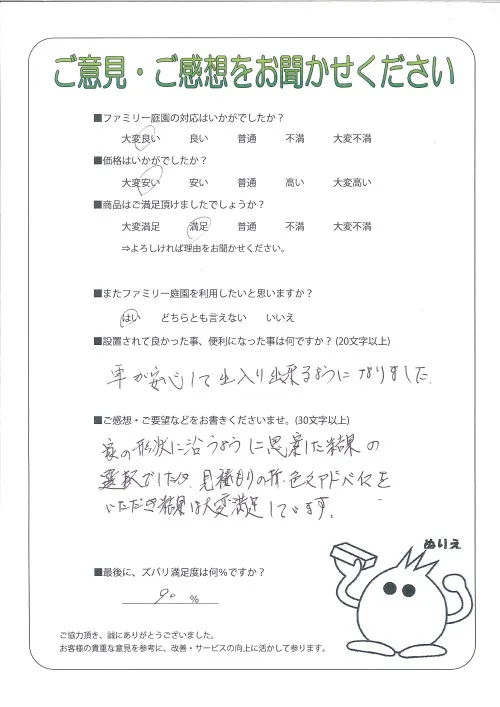 ご意見・ご感想をお聞かせください
■ファミリー庭園の対応はいかがでしたか？
大変良い 良い 普通 不満 大変不満
■価格はいかがでしたか？
大変安い 安い 普通 高い 大変高い
■商品はご満足頂けましたでしょうか？
大変満足 満足 普通 不満 大変不満
⇒よろしければ理由をお聞かせください。
■またファミリー庭園を利用したいと思いますか？
はい どちらとも言えない いいえ
■設置されて良かった事、便利になった事は何ですか？(20文字以上)
車が安心して出入り出来るようになりました.
■ご感想・ご要望などをお書きくださいませ。(30文字以上)
家の形状に沿うように思案した結果の
選択でしたが、見積もりの折、色々アドバイスを
いただき結果は大変満足しています。
ぬりえ
■最後に、ズバリ満足度は何%ですか？
90 %
ご協力頂き、誠にありがとうございました。
お客様の貴重な意見を参考に、改善・サービスの向上に活かして参ります。